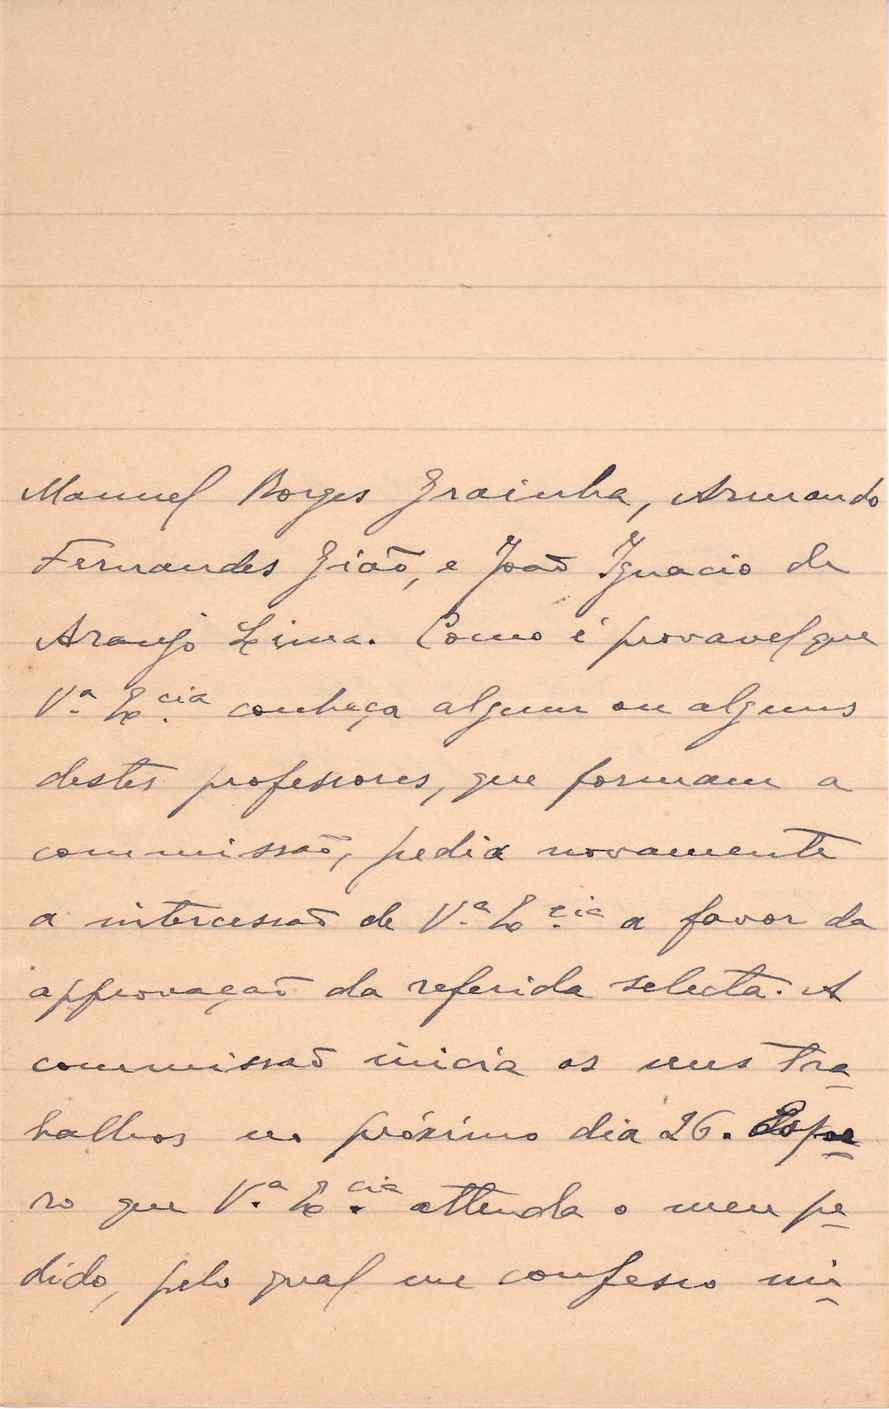 Manuel Borges Grainha, Armando
Fernandes Gião, e João Ignacio de
Araujo Lima. Como é provavel que
V.ª Ex.cia conheça algum ou alguns
destes professores, que formam a
commissão, pedia novamente
a intercessão de V.ª Ex.cia a favor da
approvação da referida selecta. A
commissão inicia os seus tra-
balhos no próximo dia 26. Espe-
ro que V.ª Ex.cia attenda o meu pe-
dido, pelo qual me confesso mi-